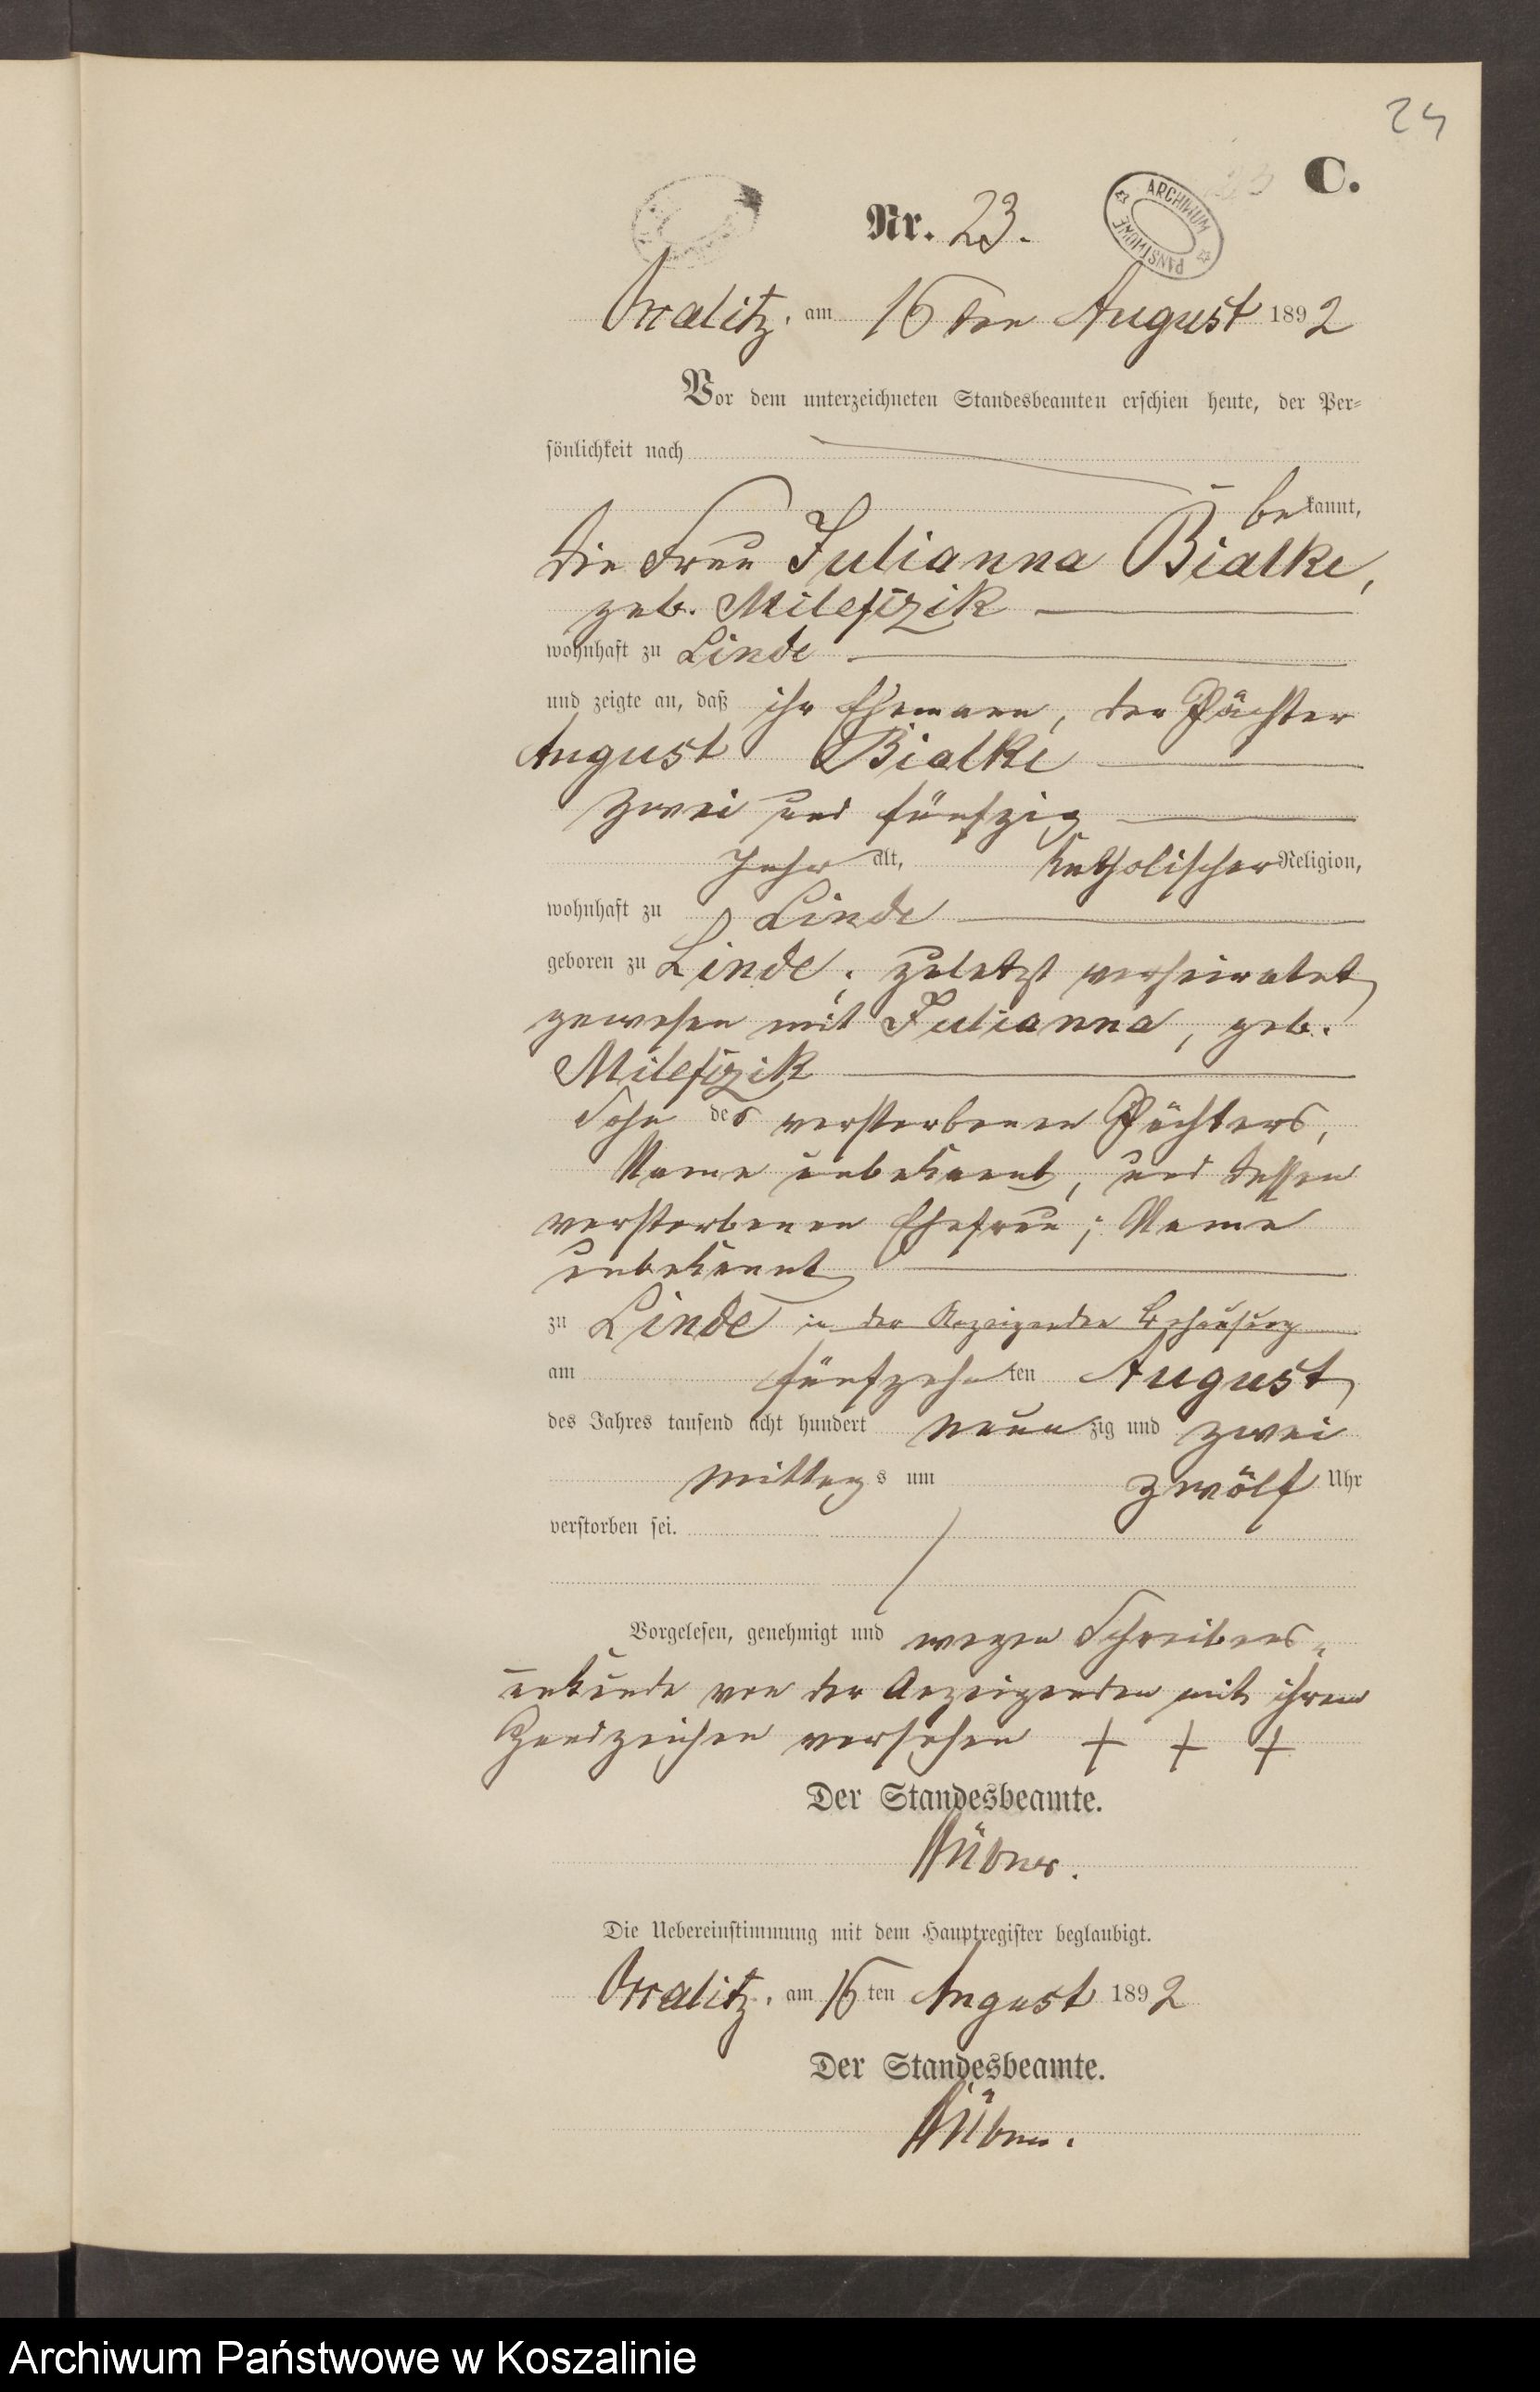 24
C.
Nr. 23.
ARCHIWUM PAŃSTWOWE
am 16ten August 1892
Vor dem unterzeichneten Standesbeamten erschien heute, der Per-
sönlichkeit nach
bekannt,
die Frau Julianna Bialke,
geb. Milefizik
wohnhaft zu Linde
und zeigte an, daß ihr Ehemann, der Pächter
August Bialke
zwei und fünfzig
Jahr alt, katholischer Religion,
wohnhaft zu Linde
geboren zu Linde, zuletzt verheiratet
gewesen mit Julianna, geb.
Milefizik
Sohn des verstorbenen Pächters,
Name unbekannt, und dessen
verstorbenen Ehefrau, Name
unbekannt
zu Linde in der Anzeigenden Behausung
am fünfzehnten August
des Jahres tausend acht hundert neunzig und zwei
Mittags um zwölf Uhr
verstorben sei.
Vorgelesen, genehmigt und wegen Schreibens-
unkunde von der Anzeigenden mit ihrem
Handzeichen versehen + + +
Der Standesbeamte.
Hübner.
Die Uebereinstimmung mit dem Hauptregister beglaubigt.
am 16ten August 1892
Der Standesbeamte.
Hübner.
Archiwum Państwowe w Koszalinie